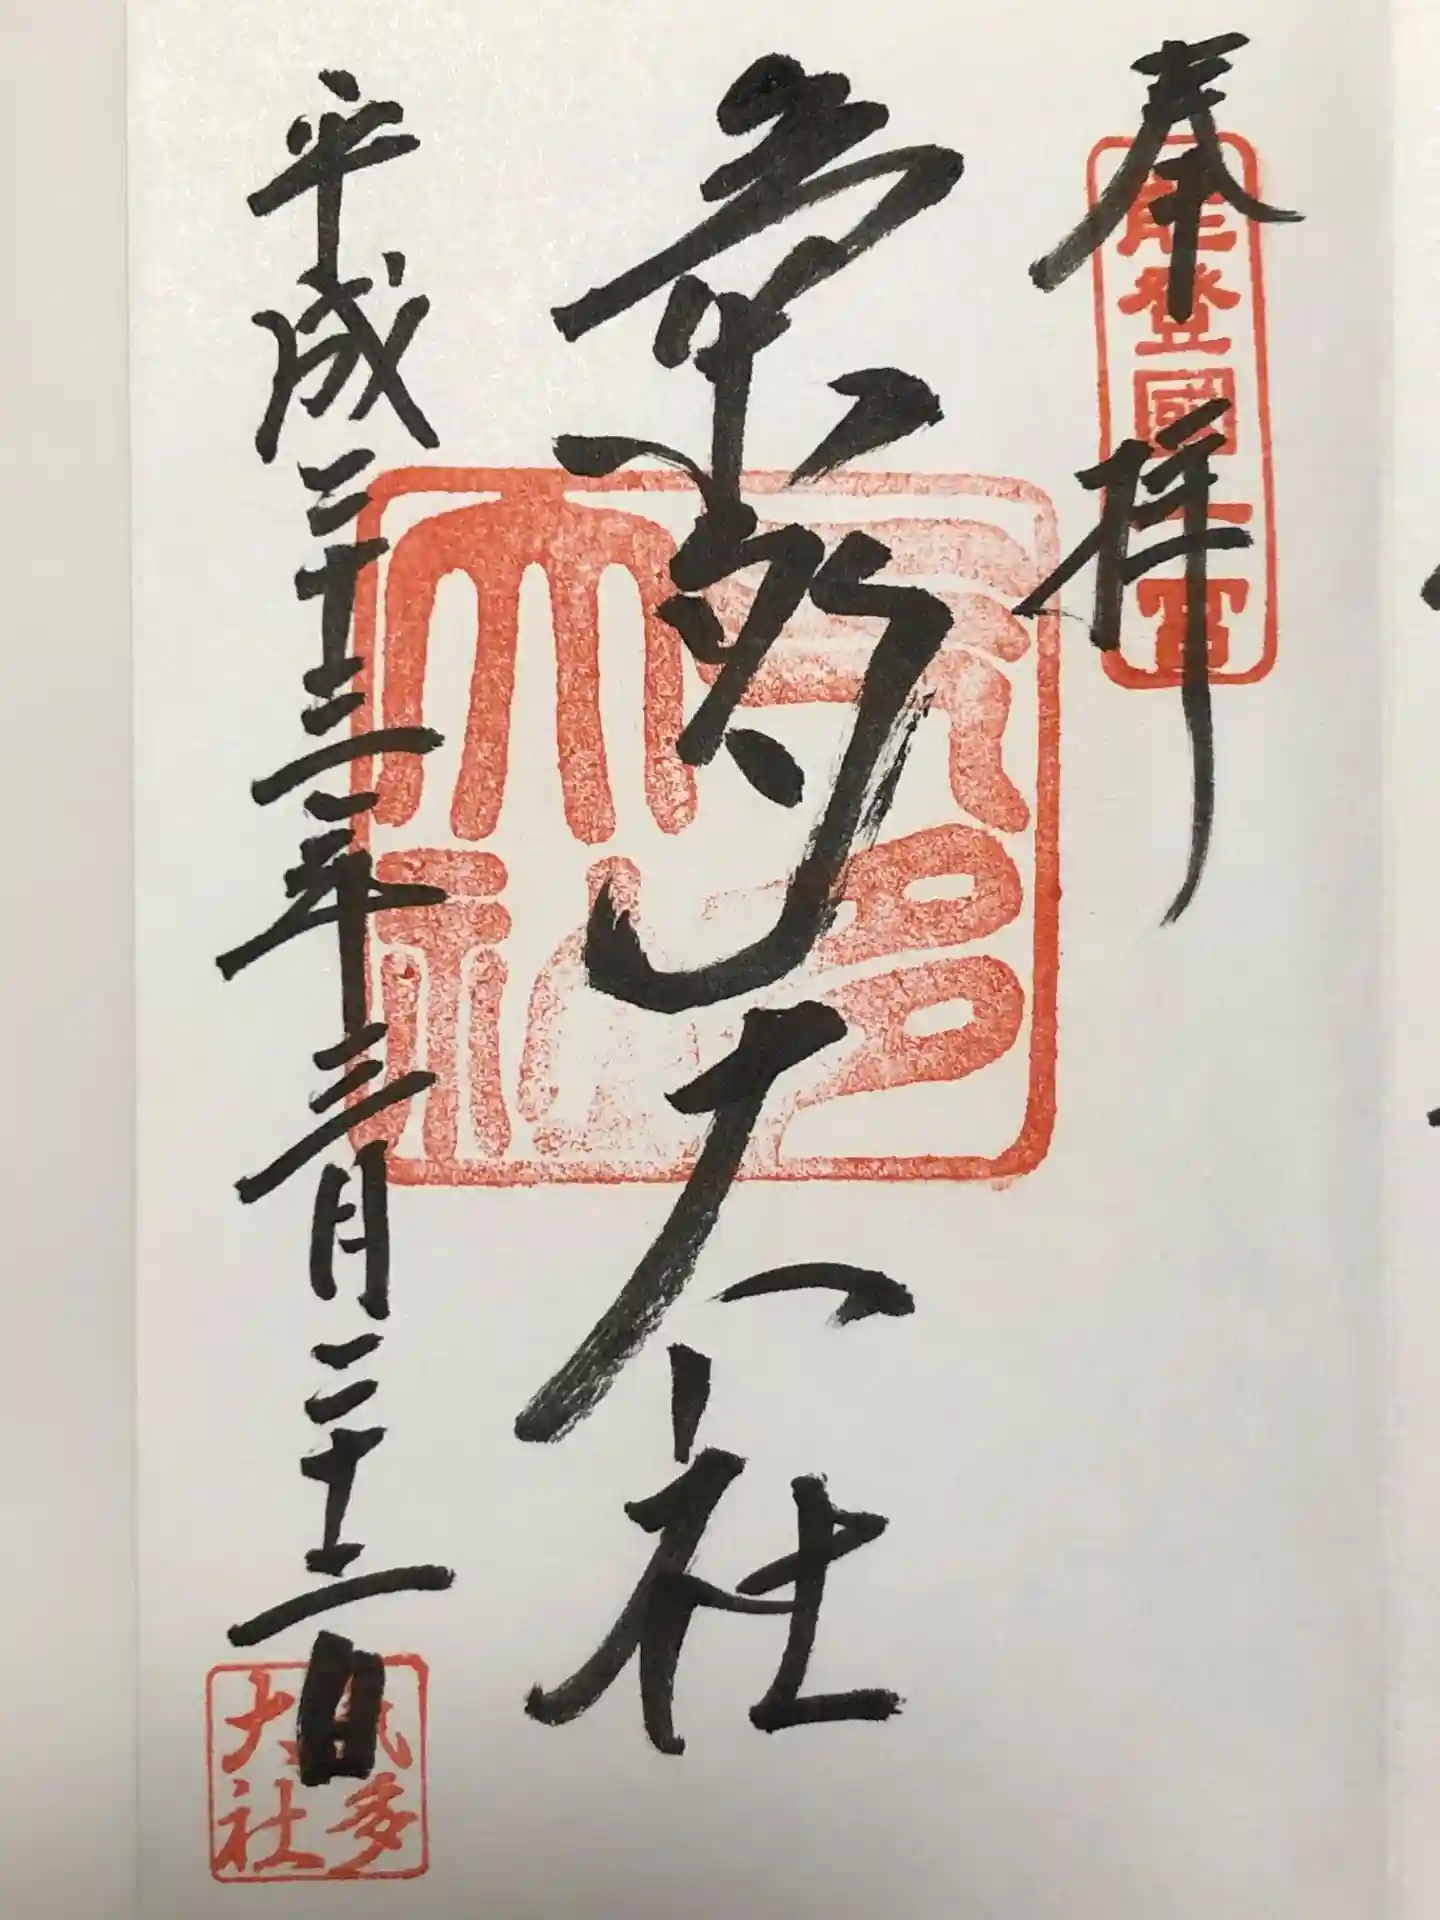 奉拝
能登國一宮
氣多大社
氣多大社
平成二十三年三月二十二日
氣多
大社